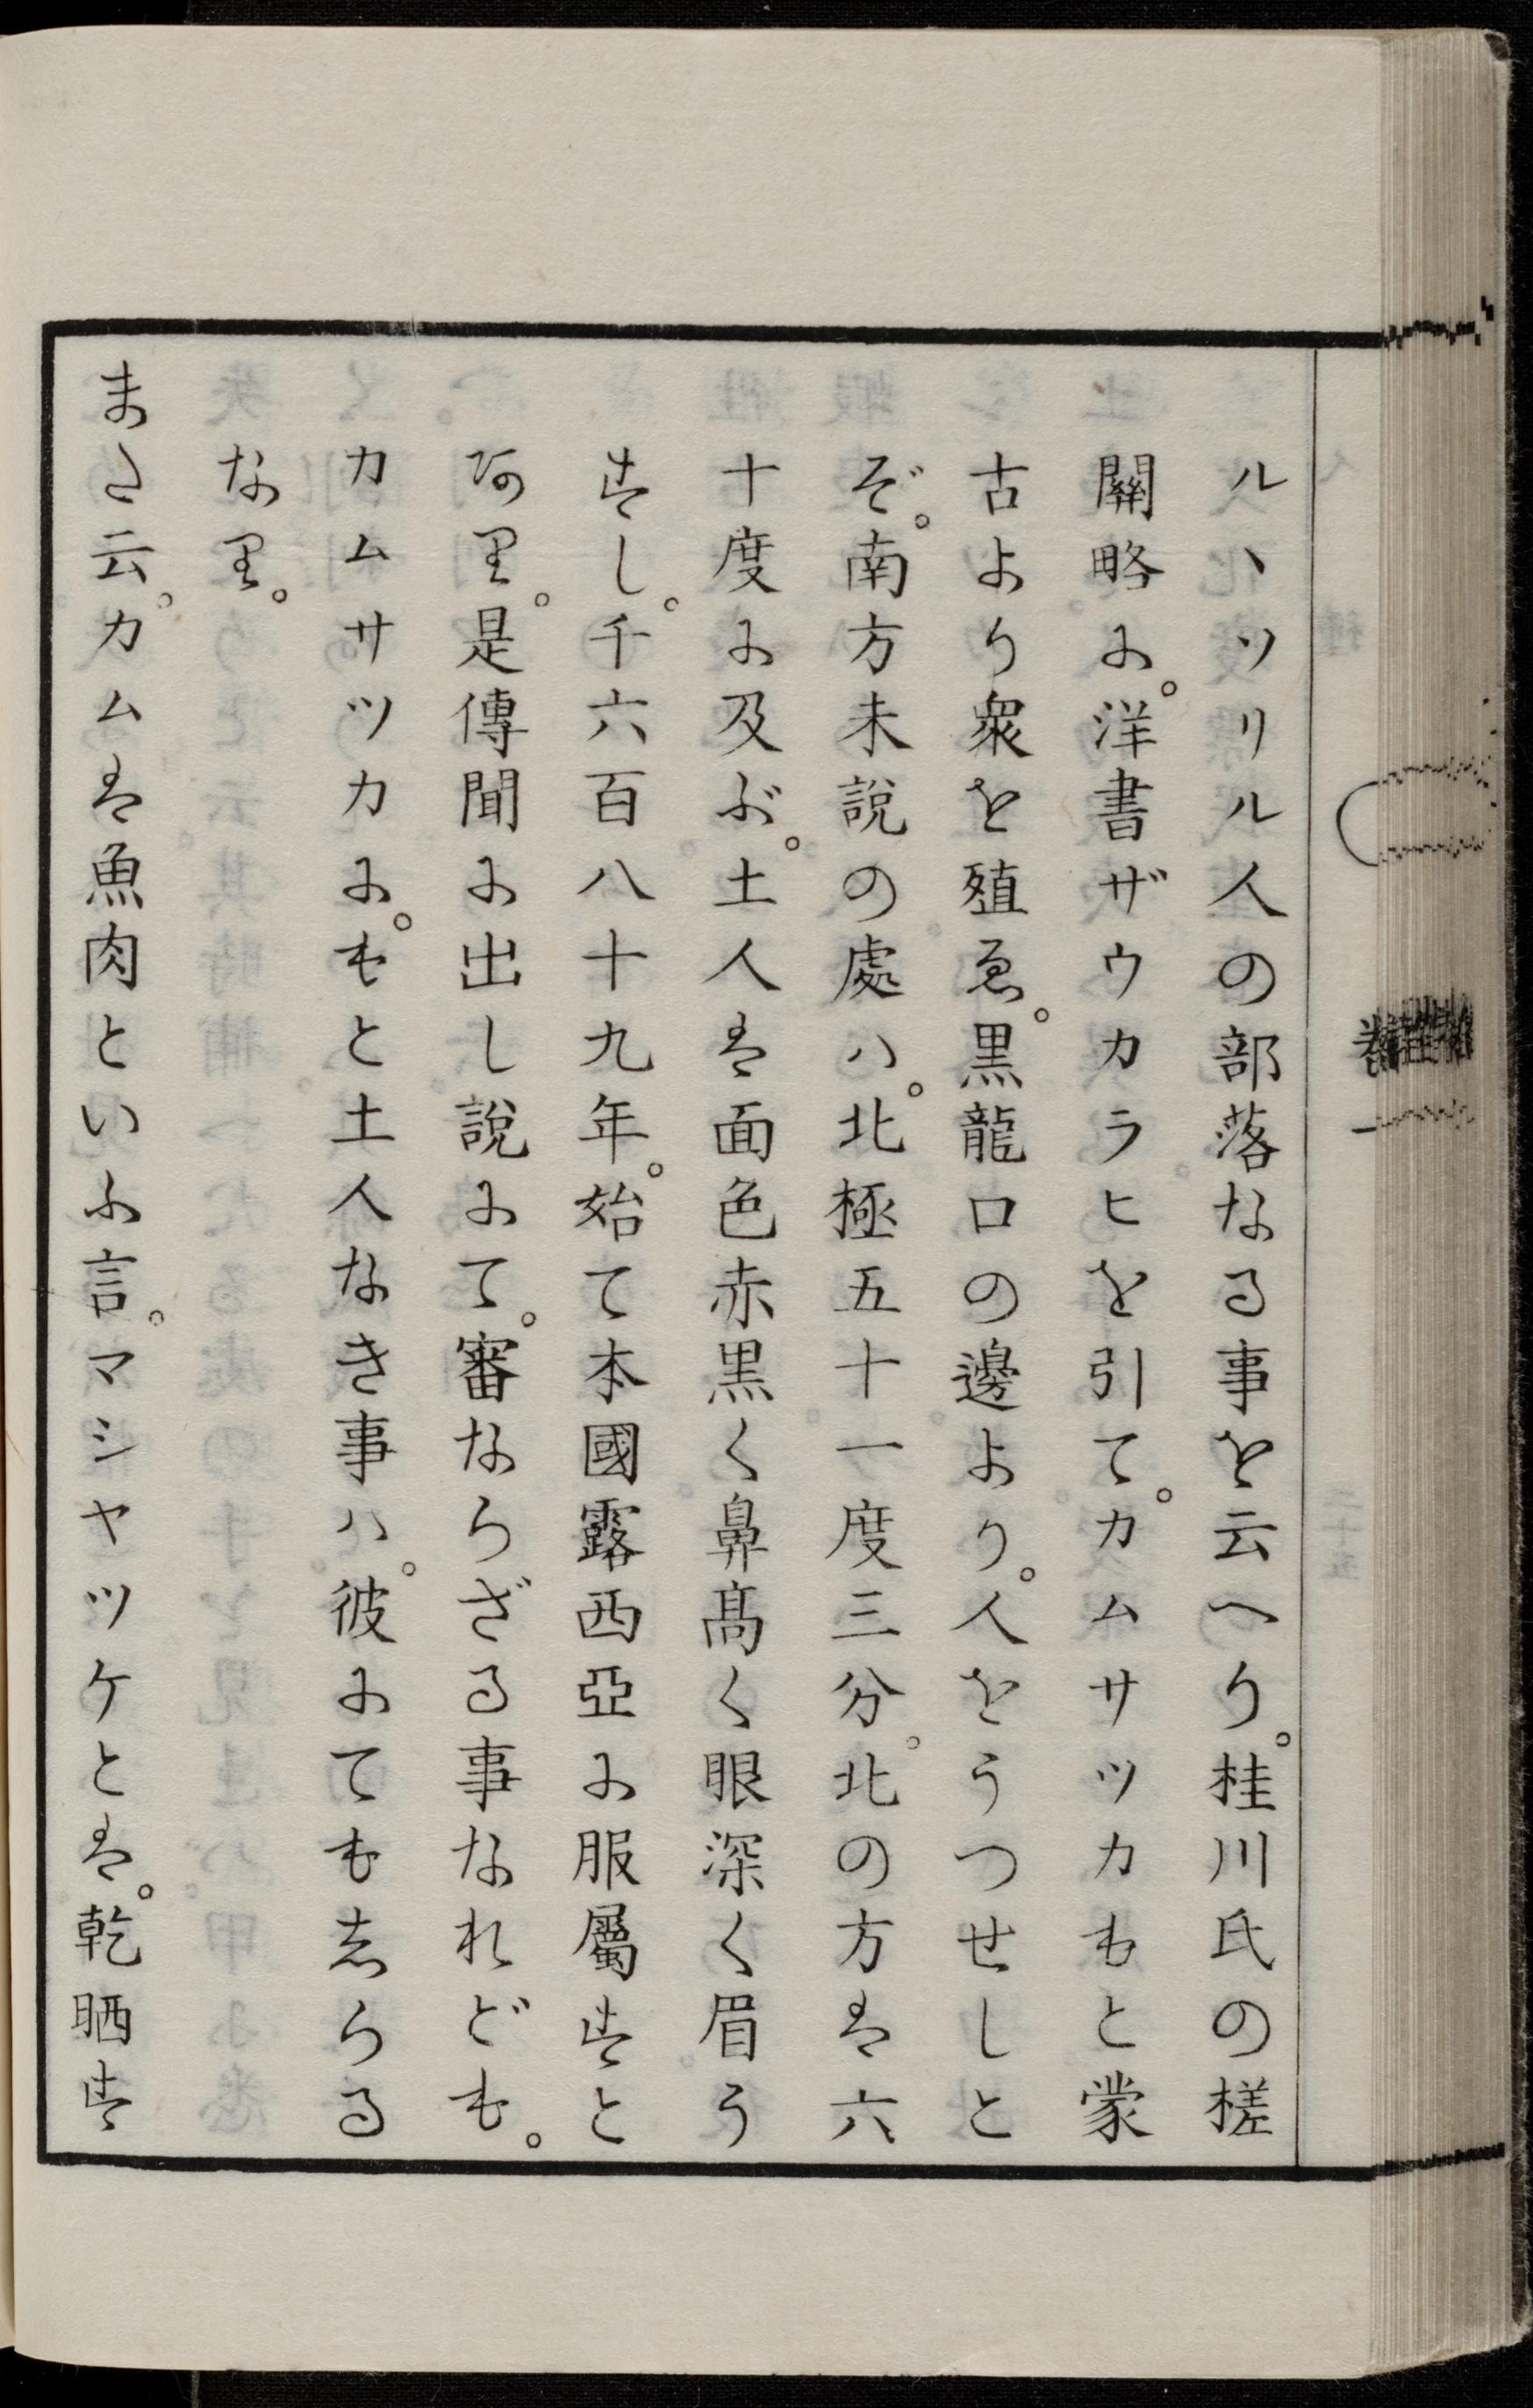 ルハツリル人の部落なる事を云へり。桂川氏の槎
關略に。洋書ザウカラヒを引て。カムサツカもと蒙
古より衆を殖ゑ。黒龍口の邊より。人をうつせしと
ぞ。南方未說の處ハ。北極五十一度三分。北の方は六
十度に及ぶ。土人は面色赤黒く鼻髙く眼深く眉う
すし。千六百八十九年。始て本國露西亞に服屬すと
あり。是傳聞に出し說にて。審ならざる事なれども。
カムサツカに。もと土人なき事ハ。彼にてもしらる
なり。
また云。カムは魚肉といふ言。マシヤツケとは。乾晒す
卷一